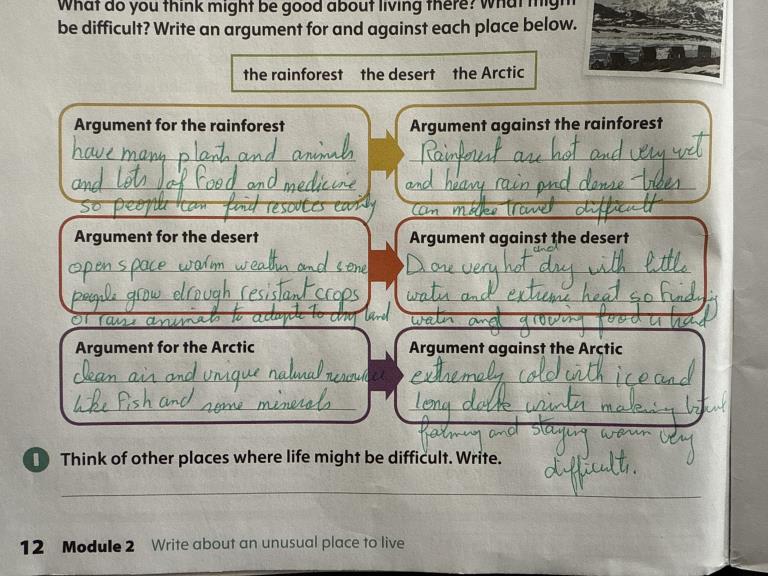 What do you think might be good about living there? What might
be difficult? Write an argument for and against each place below.
the rainforest the desert the Arctic
Argument for the rainforest
have many plants and animals
and lots of food and medicine
so people can find resouces easily
Argument against the rainforest
Rainforest are hot and very wet
and heavy rain and dense trees
can make travel difficult
Argument for the desert
open space warm weather and some
people grow drough resistant crops
or raise animals to adapte to dry land
Argument against the desert
D are very hot and dry with little
water and extreme heat so finding
water and growing food is hard
Argument for the Arctic
clean air and unique natural resource
like fish and some minerals
Argument against the Arctic
extremely cold with ice and
long dark winter making
farming and staying warm very
difficult.
1 Think of other places where life might be difficult. Write.
12 Module 2 Write about an unusual place to live